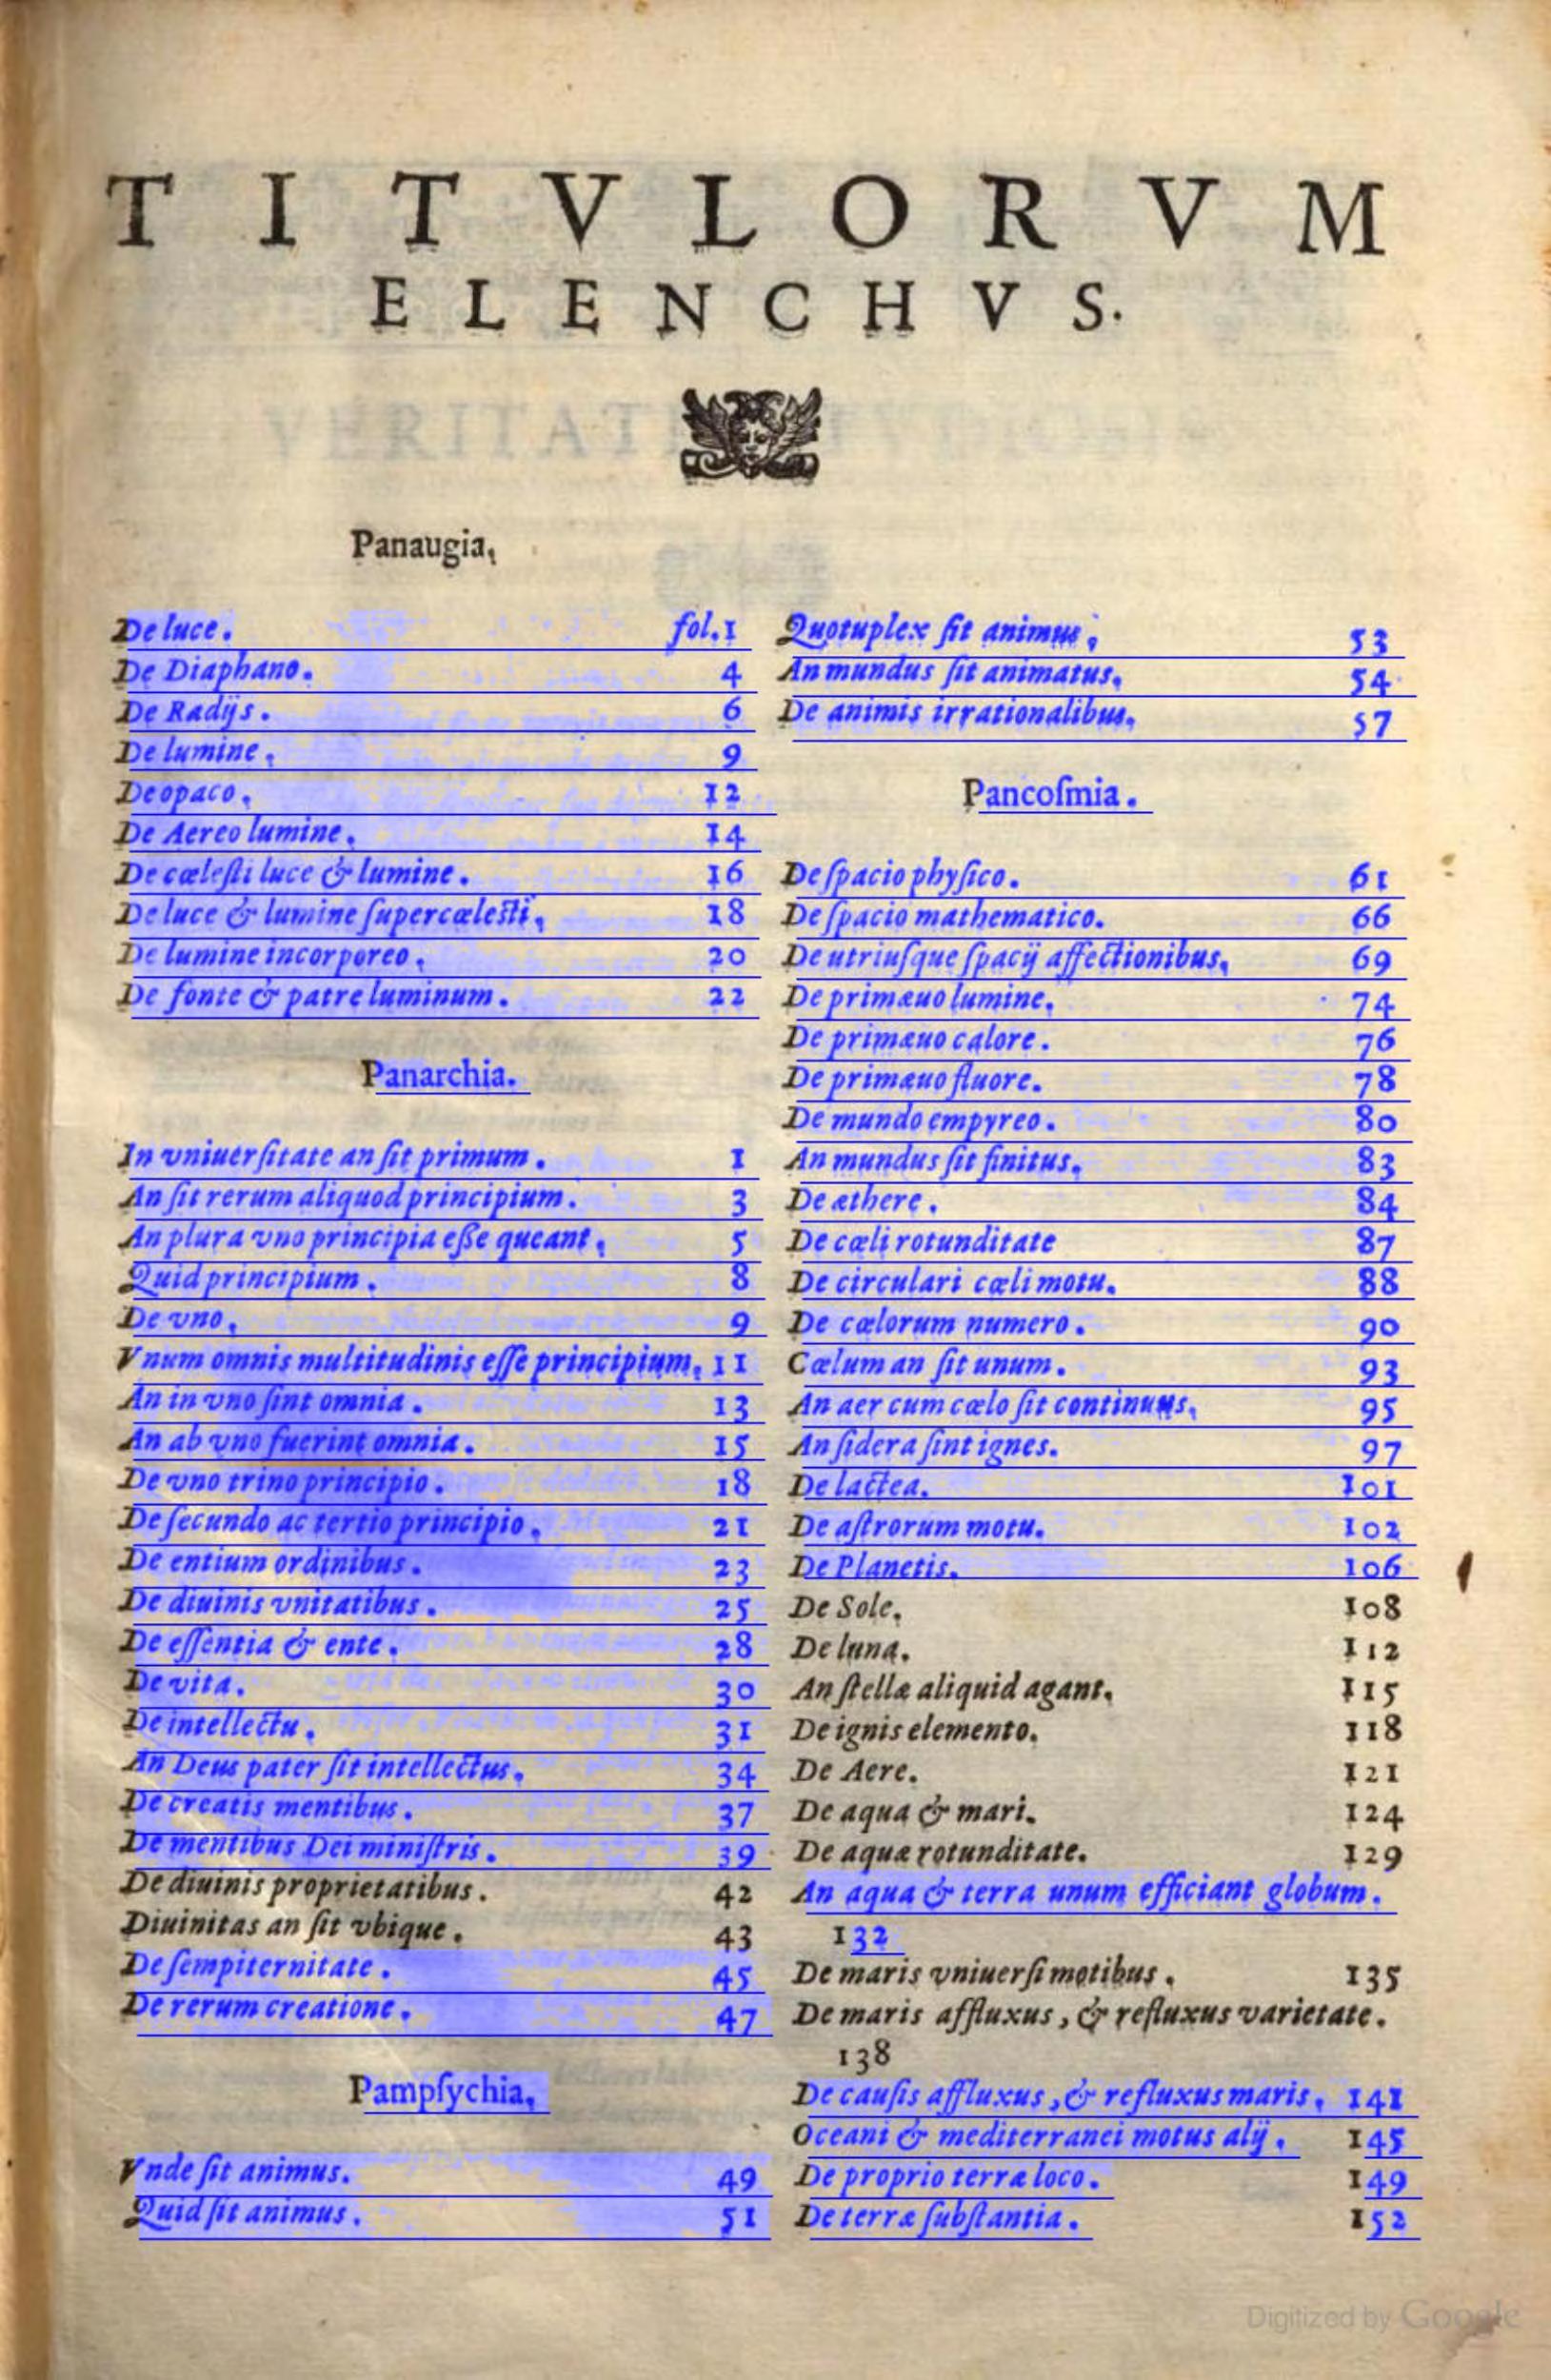 TITVLORVM
ELENCHVS.
Panaugia,
De luce. fol.1
De Diaphano. 4
De Radijs. 6
De lumine, 9
De opaco, 12
De Aereo lumine. 14
De cœlesti luce & lumine. 16
De luce & lumine ſupercœlesti, 18
De lumine incorporeo. 20
De fonte & patre luminum. 22
Panarchia.
In vniuerſitate an ſit primum. 1
An ſit rerum aliquod principium. 3
An plura vno principia eſſe queant, 5
Quid principium. 8
De vno, 9
Vnum omnis multitudinis eſſe principium, 11
An in vno ſint omnia. 13
An ab vno fuerint omnia. 15
De vno trino principio. 18
De ſecundo ac tertio principio, 21
De entium ordinibus. 23
De diuinis vnitatibus. 25
De eſſentia & ente. 28
De vita. 30
De intellectu. 31
An Deus pater ſit intellectus, 34
De creatis mentibus. 37
De mentibus Dei miniſtris. 39
De diuinis proprietatibus. 42
Diuinitas an ſit vbique. 43
De ſempiternitate. 45
De rerum creatione. 47
Pampſychia,
Vnde ſit animus. 49
Quid ſit animus. 51
Quotuplex ſit animus, 53
An mundus ſit animatus, 54
De animis irrationalibus, 57
Pancoſmia.
De ſpacio phyſico. 61
De ſpacio mathematico. 66
De utriuſque ſpacij affectionibus, 69
De primæuo lumine. 74
De primæuo calore. 76
De primæuo fluore. 78
De mundo empyreo. 80
An mundus ſit finitus, 83
De æthere. 84
De cœli rotunditate 87
De circulari cœli motu. 88
De cœlorum numero. 90
Cœlum an ſit unum. 93
An aer cum cœlo ſit continuus, 95
An ſidera ſint ignes. 97
De lactea. 101
De aſtrorum motu. 102
De Planetis. 106
De Sole. 108
De luna. 112
An ſtellæ aliquid agant. 115
De ignis elemento. 118
De Aere. 121
De aqua & mari. 124
De aquæ rotunditate. 129
An aqua & terra unum efficiant globum.
132
De maris vniuerſi motibus. 135
De maris affluxus, & refluxus varietate.
138
De cauſis affluxus, & refluxus maris, 141
Oceani & mediterranei motus alij. 145
De proprio terræ loco. 149
De terræ ſubſtantia. 152
Digitized by Google